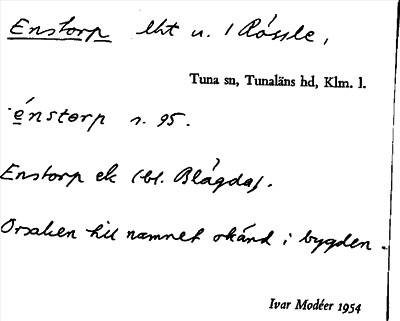 Enstorp lht u. 1 Rössle,
Tuna sn, Tunaläns hd, Klm. l.
énstørp s. 95.
Enstorp ek (bl. Blågda).
Orsaken till namnet okänd i bygden.
Ivar Modéer 1954